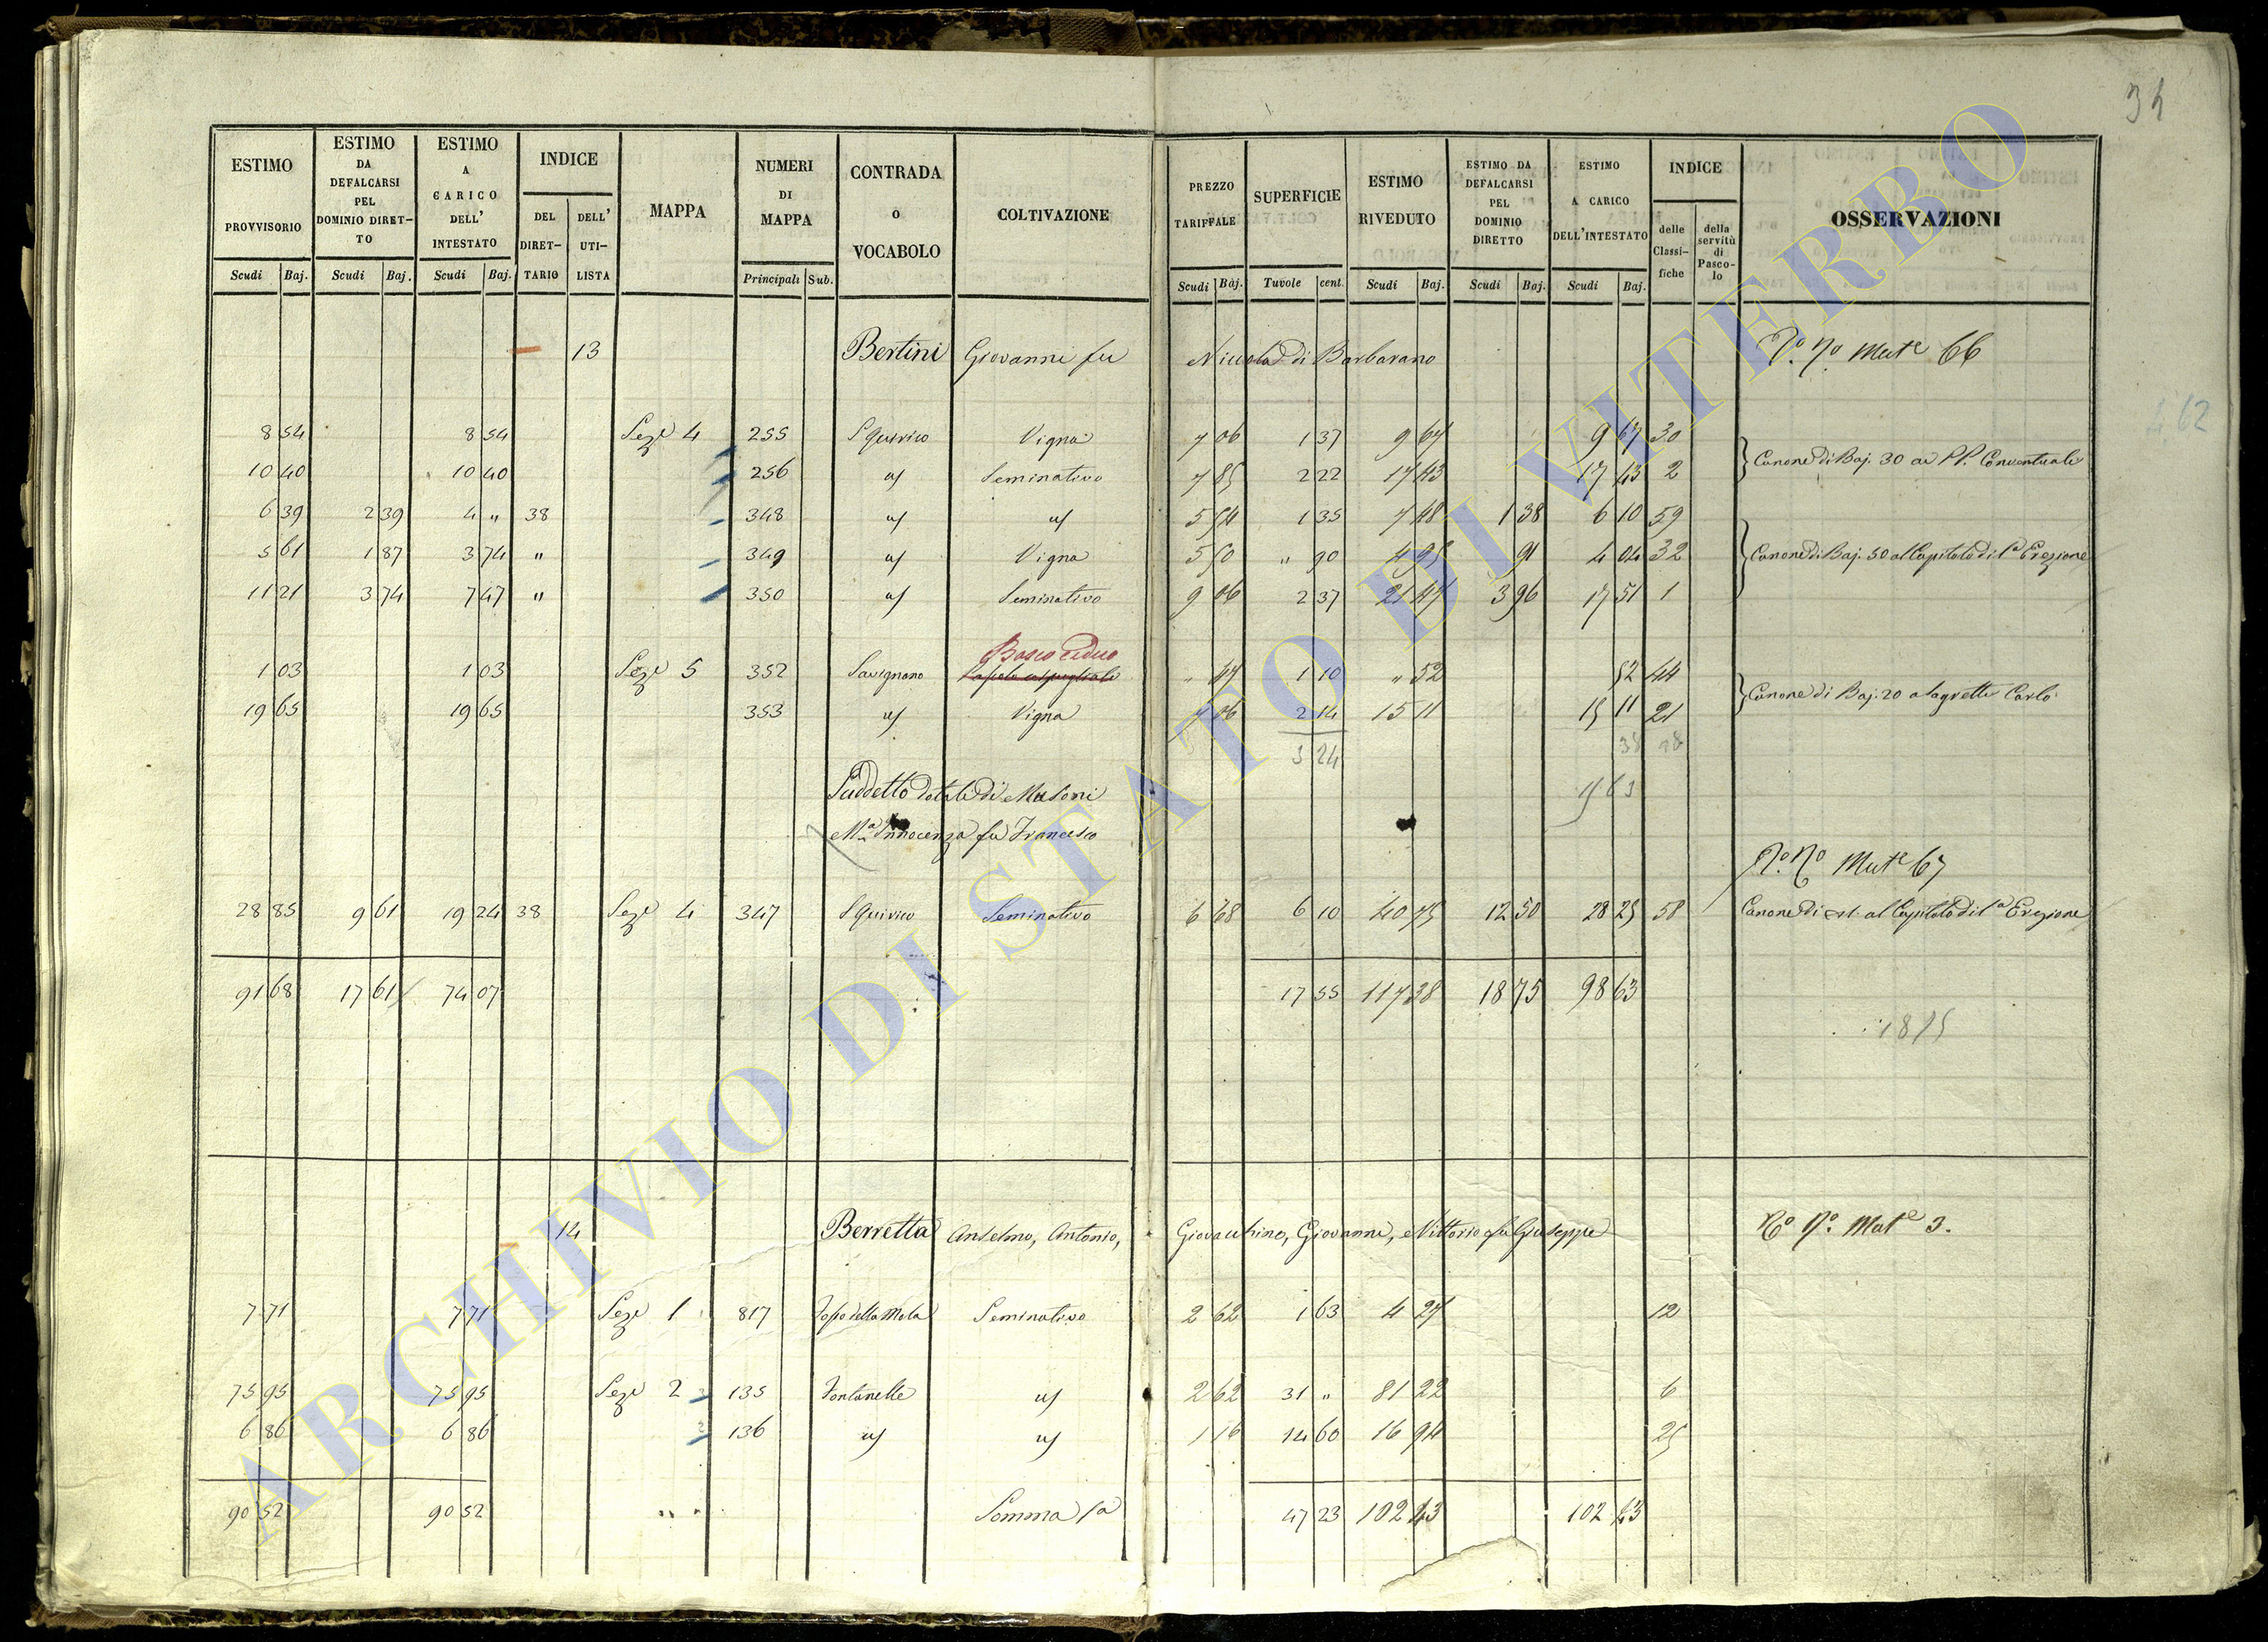 34
ESTIMO PROVVISORIO Scudi Baj.
ESTIMO DA DEFALCARSI PEL DOMINIO DIRETTO Scudi Baj.
ESTIMO A CARICO DELL' INTESTATO Scudi Baj.
INDICE DEL DIRETTARIO DELL' UTILISTA
MAPPA
NUMERI DI MAPPA Principali Sub.
CONTRADA O VOCABOLO
COLTIVAZIONE
PREZZO TARIFFALE Scudi Baj.
SUPERFICIE Tavole cent.
ESTIMO RIVEDUTO Scudi Baj.
ESTIMO DA DEFALCARSI PEL DOMINIO DIRETTO Scudi Baj.
ESTIMO A CARICO DELL'INTESTATO Scudi Baj.
INDICE delle Classifiche della servitù di Pascolo
OSSERVAZIONI
13 Bertini Giovanni fu Niccola di Barbarano Mut.e 66
8 54 8 54 Sez.e 4 255 S Quirico Vigna 7 06 1 37 9 67 9 67 30
10 40 10 40 256 Seminativo 7 85 2 22 17 43 17 43 2 Canone di Baj. 30 ai PP. Conventuali
6 39 2 39 4 " 38 348 5 54 1 35 7 48 1 38 6 10 59
5 61 1 87 3 74 " 349 Vigna 5 50 " 90 4 95 91 4 04 32 Canone di Baj. 50 al Capitolo di 1a Erezione
11 21 3 74 7 47 " 350 Seminativo 9 06 2 37 21 47 3 96 17 51 1
Bosco ceduo
1 03 1 03 Sez.e 5 352 Savignano " 47 1 10 " 52 52 44
19 65 19 65 353 Vigna 7 06 2 14 15 11 15 11 21 Canone di Baj. 20 a Carlo
3 24
Suddetto dotali di Masoni
M.a Innocenza fu Francesco
Mut.e 67
28 85 9 61 19 24 38 Sez.e 4 347 S Quirico Seminativo 6 68 6 10 40 75 12 50 28 25 58 Canone di al Capitolo di 1a Erezione
91 68 17 61 74 07 17 55 117 38 18 75 98 63
14 Berretta Anselmo, Antonio, Giovacchino, Giovanni, Vittorio fu Giuseppe Mut.e 3.
7 71 7 71 Sez.e 1 817 della Mola Seminativo 2 62 1 63 4 27 12
75 95 75 95 Sez.e 2 135 Fontanelle 2 62 31 " 81 22 6
6 86 6 86 136 1 16 14 60 16 94 25
90 52 90 52 Somma 47 23 102 43 102 43
62
ARCHIVIO DI STATO DI VITERBO